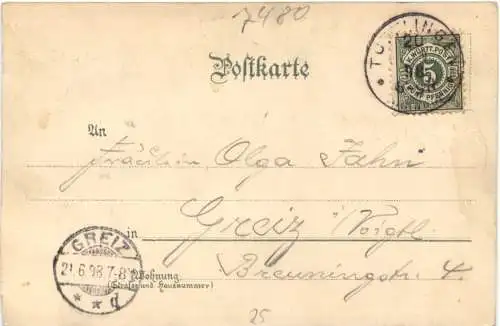 7480
TUTTLINGEN
20
K. WÜRTT. POST
5
FÜNF PFENNIG
Postkarte
An
Fräulein Olga Jahn
in Greiz Voigtl.
GREIZ
21.6.98.7-8
* * d
Wohnung Breuningstr. 4.
(Strasse und Hausnummer)
25